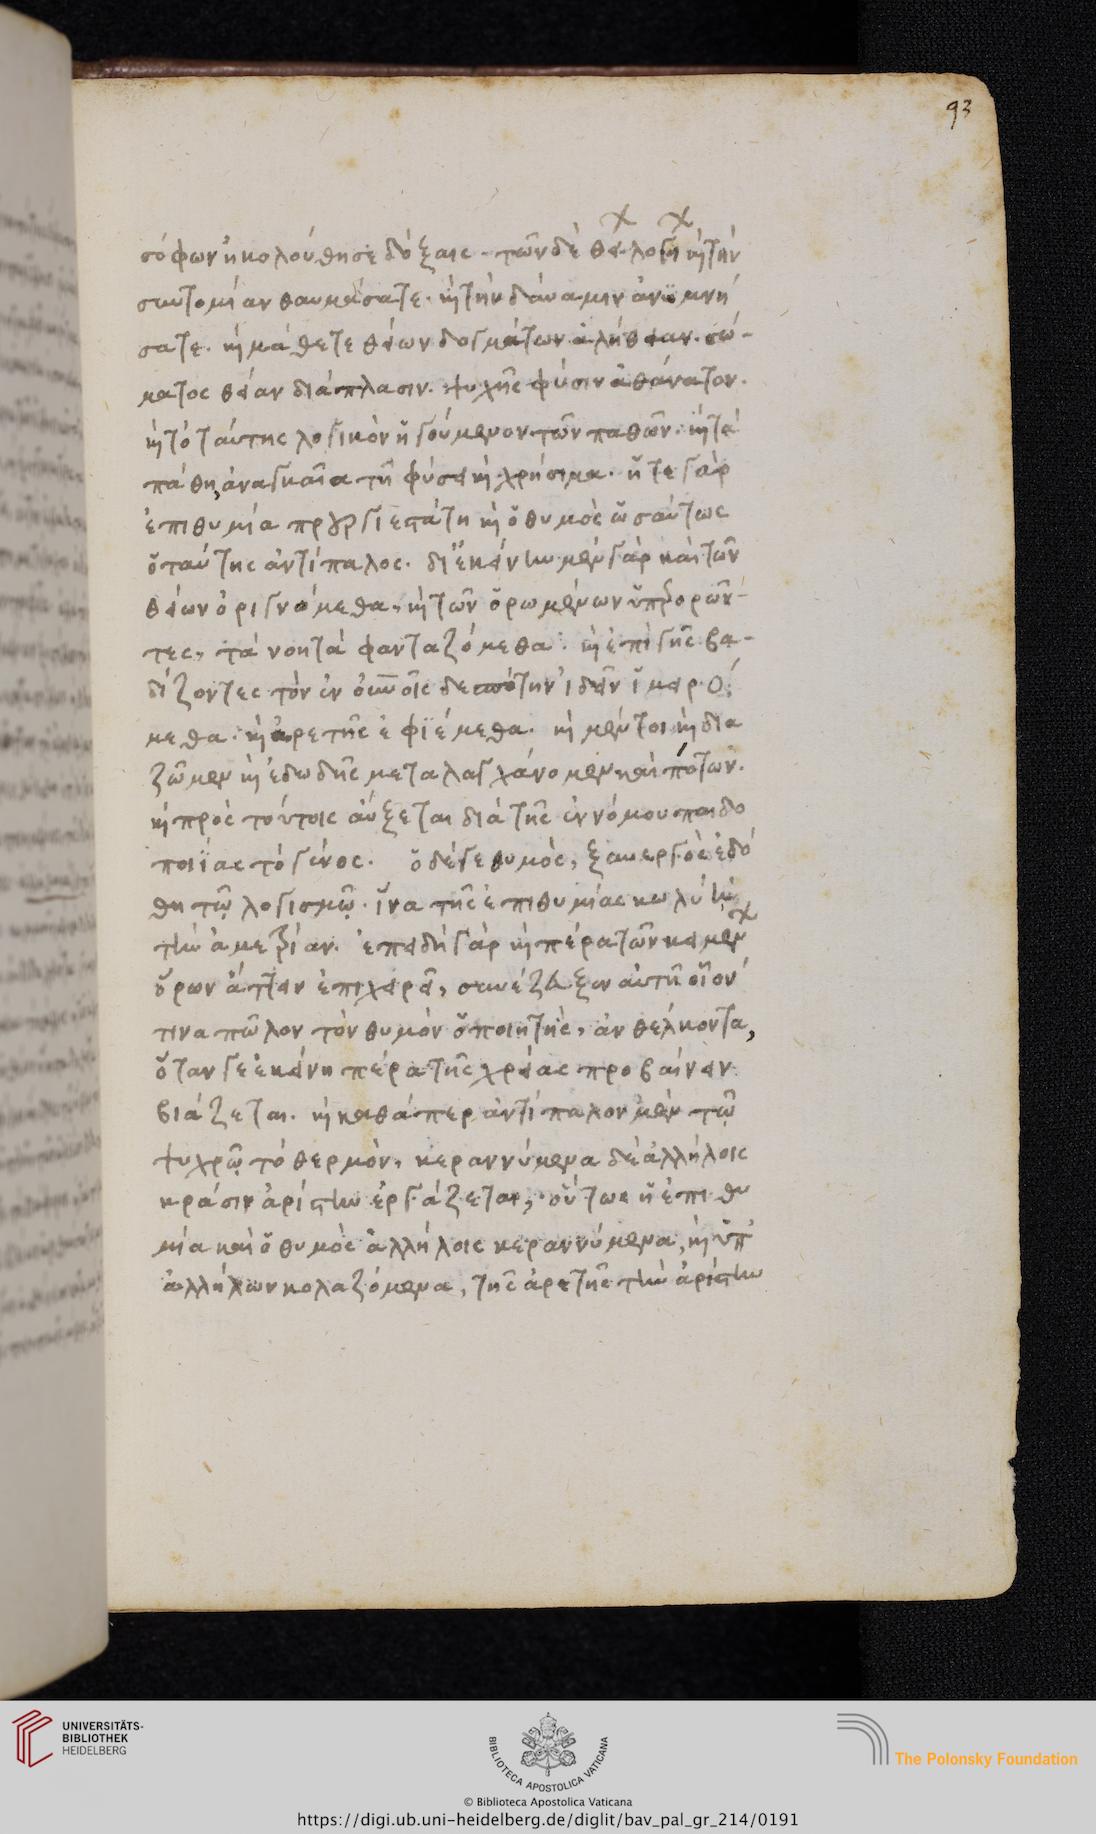 93
σόφων ἠκολούθησε δόξαις. τῶν δὲ θεολόγων καὶ τὴν
συντομίαν θαυμάσατε. καὶ τὴν δύναμιν ἀνυμνή
σατε. καὶ μάθετε θείων δογμάτων ἀλήθειαν. σώ-
ματος θείαν διάπλασιν. ψυχῆς φύσιν ἀθάνατον.
καὶ τὸ ταύτης λογικὸν ἡγούμενον τῶν παθῶν. καὶ τὰ
πάθη, ἀναγκαῖα τῇ φύσει καὶ χρήσιμα. ἥτε γὰρ
ἐπιθυμία προυργιεστάτη καὶ ὁ θυμὸς ὡσαύτως
ὁ ταύτης ἀντίπαλος. δι' ἐκείνην μὲν γὰρ καὶ τῶν
θείων ὀριγνώμεθα, καὶ τῶν ὁρωμένων ὑπερορῶν-
τες, τὰ νοητὰ φανταζόμεθα. καὶ ἐπὶ γῆς βα-
δίζοντες τὸν ἐν οὐνοῖς δεσπότην ἰδεῖν ἱμειρό
μεθα. καὶ ἀρετῆς ἐφϊέμεθα. καὶ μέντοι καὶ δια
ζῶμεν καὶ ἐδωδῆς μεταλαγχάνομεν καὶ πότων.
καὶ πρὸς τούτοις αὔξεται διὰ τῆς ἐννόμου παιδο
ποιΐας τὸ γένος. ὁ δέ γε θυμὸς, ξυνεργὸς ἐδό
θη τῷ λογισμῷ. ἵνα τῆς ἐπιθυμίας κωλύῃ
τὴν ἀμετρίαν. ἐπειδὴ γὰρ καὶ πέρα τῶν κειμένων
ὅρων ἄττειν ἐπιχειρεῖ, συνέζευξεν αὐτῇ οἷόν
τινα πῶλον τὸν θυμὸν ὁ ποιητὴς, ἀνθέλκοντα,
ὅταν γε ἐκείνη πέρα τῆς χρείας προβαίνειν
βιάζεται. καὶ καθάπερ ἀντίπαλον μὲν τῷ
ψυχρῷ τὸ θερμὸν, κεραννύμενα δὲ ἀλλήλοις
κρᾶσιν ἀρίστην ἐργάζεται, οὕτως ἡ ἐπιθυ
μία καὶ ὁ θυμὸς ἀλλήλοις κεραννύμενα, καὶ ὑπ'
ἀλλήλων κολαζόμενα, τῆς ἀρετῆς τὴν ἀρίστην
UNIVERSITÄTS-
BIBLIOTHEK
HEIDELBERG
BIBLIOTECA APOSTOLICA VATICANA
The Polonsky Foundation
© Biblioteca Apostolica Vaticana
https://digi.ub.uni-heidelberg.de/diglit/bav_pal_gr_214/0191